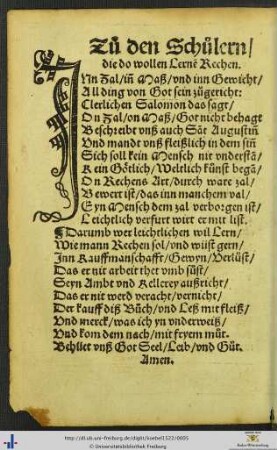 Zů den Schůlern/
die do wollen Lernē Rechen.
INn Zal/iñ Maß/vnd inn Gewicht/
All ding von Got sein zůgericht:
Clerlichen Salomon das sagt/
On Zal/on Maß/Got nicht behagt
Beschreibt vnß auch Sāt Augustin
Vnd mandt vnß fleißlich in dem siñ
Sich soll kein Mensch nit vnderstā/
Kein Götlich/Weltlich künst begā/
On Rechens Art/durch ware zal/
Bewert ist/das inn mancher val/
Eyn Mensch dem zal verborgen ist/
Leichtlich verfurt wirt er mit list.
Darumb wer leichtlichen wil Lern/
Wie mann Rechen sol/vnd wüst gern/
Inn Kauffmanschafft/Gewyn/Verlüst/
Das er nit arbeit thet vmb süst/
Seyn Ambt vnd Kellerey außricht/
Das er nit werd veracht/vernicht/
Der kauff diß Büch/vnd Leß mit fleiß/
Vnd merck/was ich yn vnderweiß/
Vnd kom dem nach/mit fryem můt.
Behüet vnß Got Seel/Leib/vnd Gůt.
Amen.
http://dl.ub.uni-freiburg.de/diglit/koebel1532/0005
© Universitätsbibliothek Freiburg
Baden-Württemberg